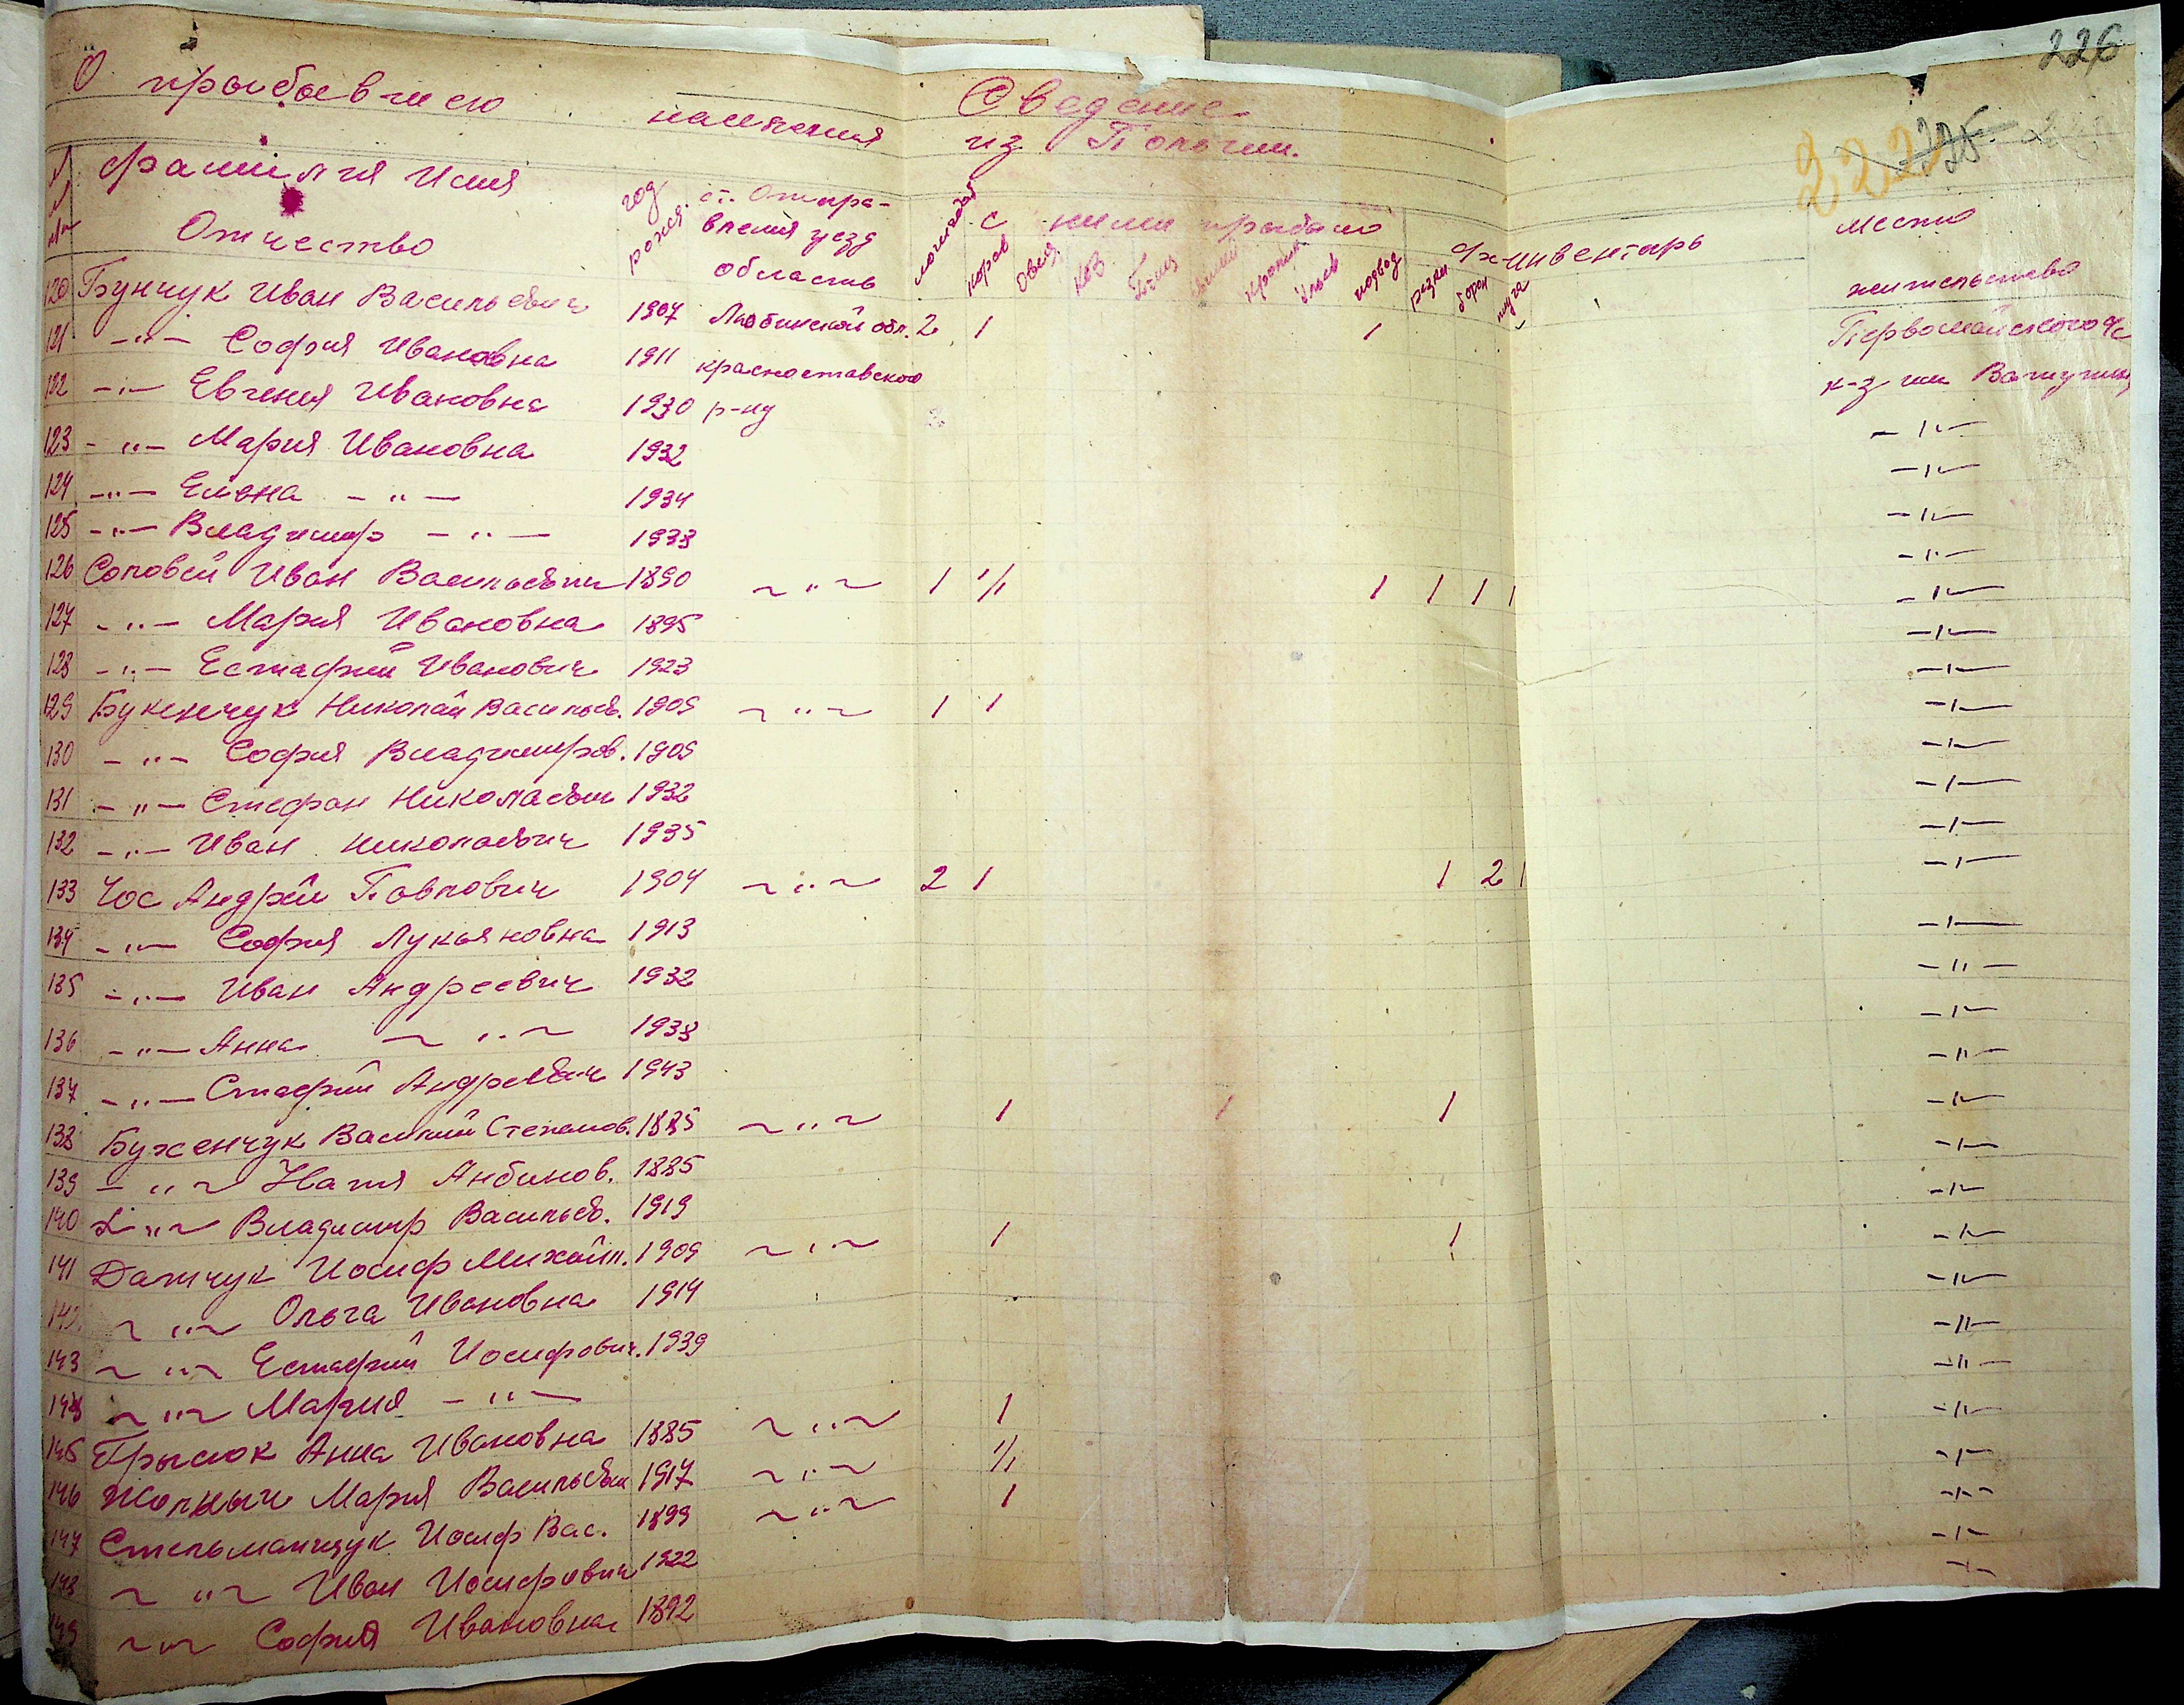 226
Сведение
О прыбывшего населения из Польши.
222 225
№ п/п Фамилия Имя Отчество год рожд. ст. Отправления уезд область лошадей с ними прыбыло коров Овец коз Птиц свиней кролик Ульев подвод С/х инвентарь резки борон плуга место жительства
120 Бунчук Иван Васильевич 1907 Люблинской обл. 2 1 1 Первомайского с/с
121 -"- София Ивановна 1911 красноставского к-з им Ватутина
122 -"- Евгения Ивановна 1930 р-ну -"-
123 -"- Мария Ивановна 1932 -"-
124 -"- Елена -"- 1934 -"-
125 -"- Владимир -"- 1938 -"-
126 Соловей Иван Васильевич 1890 -"- 1 1/1 1 1 1 1 -"-
127 -"- Мария Ивановна 1895 -"-
128 -"- Естафий Иванович 1923 -"-
129 Букенчук Николай Васильев. 1909 -"- 1 1 -"-
130 -"- София Владимиров. 1909 -"-
131 -"- Стефан Николаевич 1932 -"-
132 -"- Иван Николаевич 1935 -"-
133 Чос Андрей Павлович 1904 -"- 2 1 1 2 1 -"-
134 -"- София Лукьяновна 1913 -"-
135 -"- Иван Андреевич 1932 -"-
136 -"- Анна -"- 1938 -"-
137 -"- Стафий Андреевич 1943 -"-
138 Буженчук Василий Степанов. 1885 -"- 1 1 1 -"-
139 -"- Настя Анбинов. 1885 -"-
140 -"- Владимир Васильев. 1919 -"-
141 Датчук Иосиф Михайл. 1909 -"- 1 1 -"-
142 -"- Ольга Ивановна 1914 -"-
143 -"- Естафий Иосифович. 1939 -"-
144 -"- Мария -"- -"-
145 Прысюк Анна Ивановна 1885 -"- 1 -"-
146 Жолныч Мария Васильевн 1917 -"- 1/1 -"-
147 Стельмащук Иосиф Вас. 1899 -"- 1 -"-
148 -"- Иван Иосифович 1922 -"-
149 -"- София Ивановна 1892 -"-